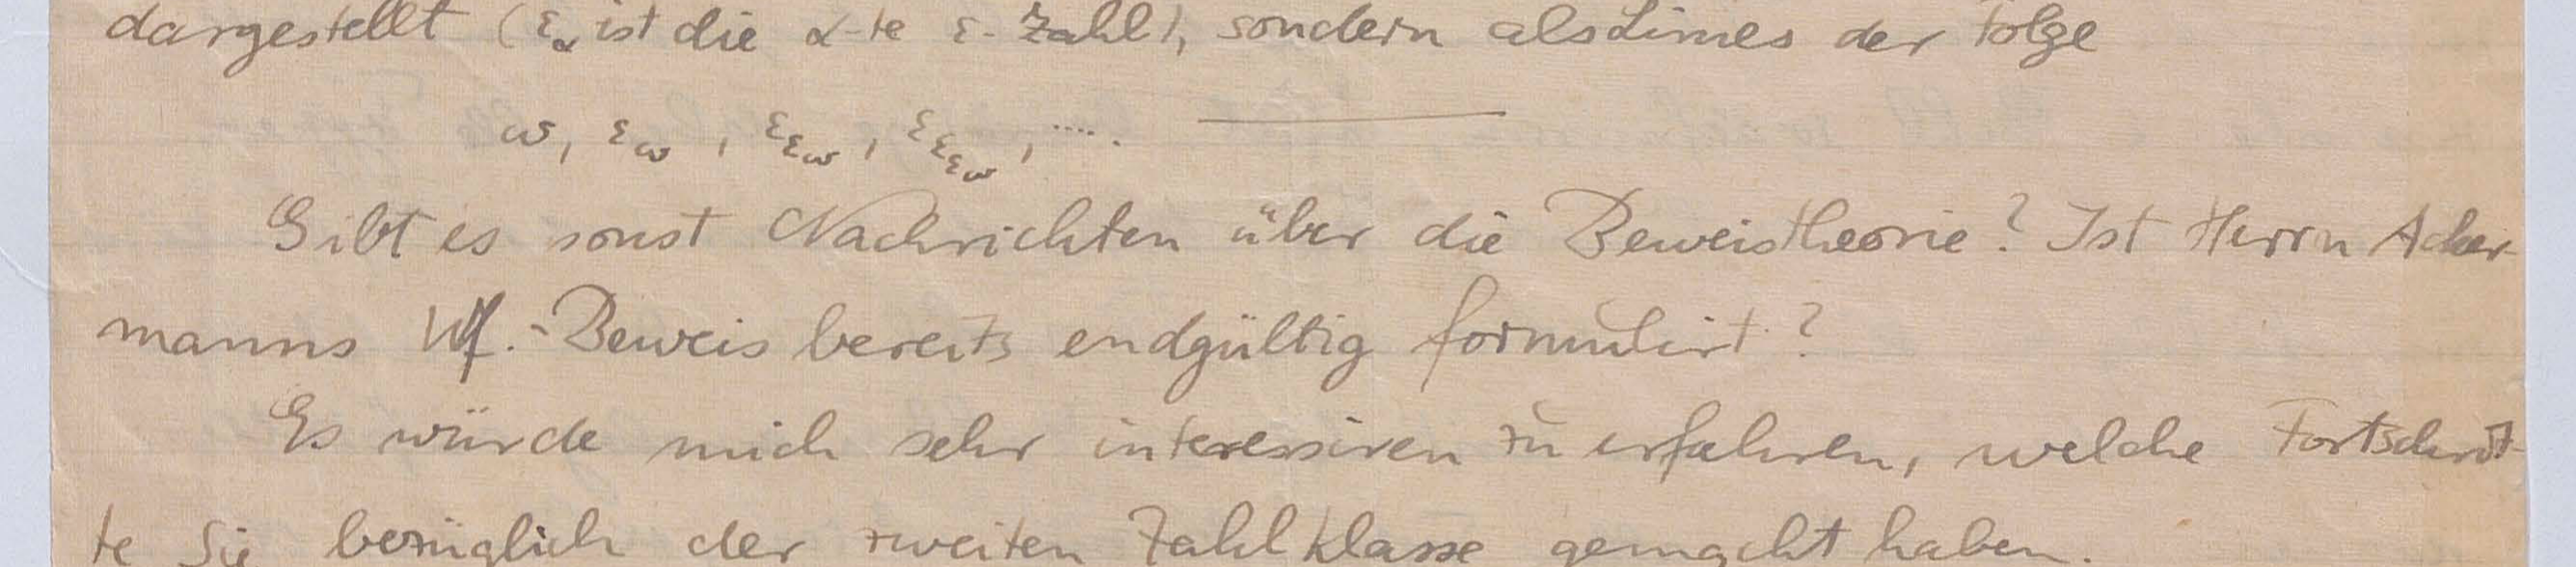 dargestellt (ε_α ist die α-te ε-Zahl), sondern als Limes der Folge
ω, ε_ω, ε_{ε_ω}, ε_{ε_{ε_ω}}, .....
Gibt es sonst Nachrichten über die Beweistheorie? Ist Herrn Acker-
manns Wf.-Beweis bereits endgültig formulirt?
Es würde mich sehr interessiren zu erfahren, welche Fortschrit-
te Sie bezüglich der zweiten Zahlklasse gemacht haben.